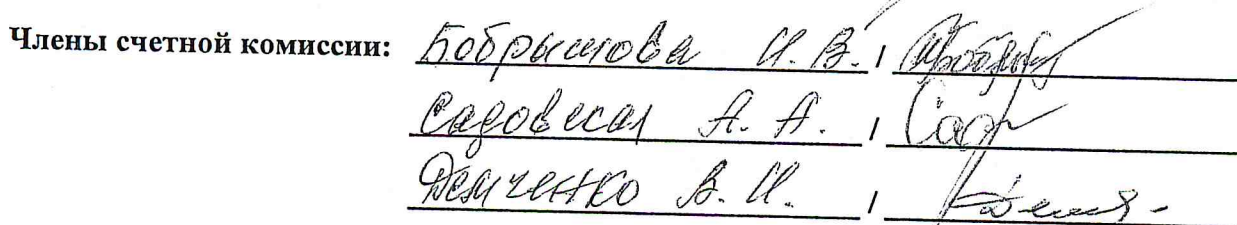 Члены счетной комиссии: Бобрышова И. В. /
Садовская А. А. /
Демченко В. И. /